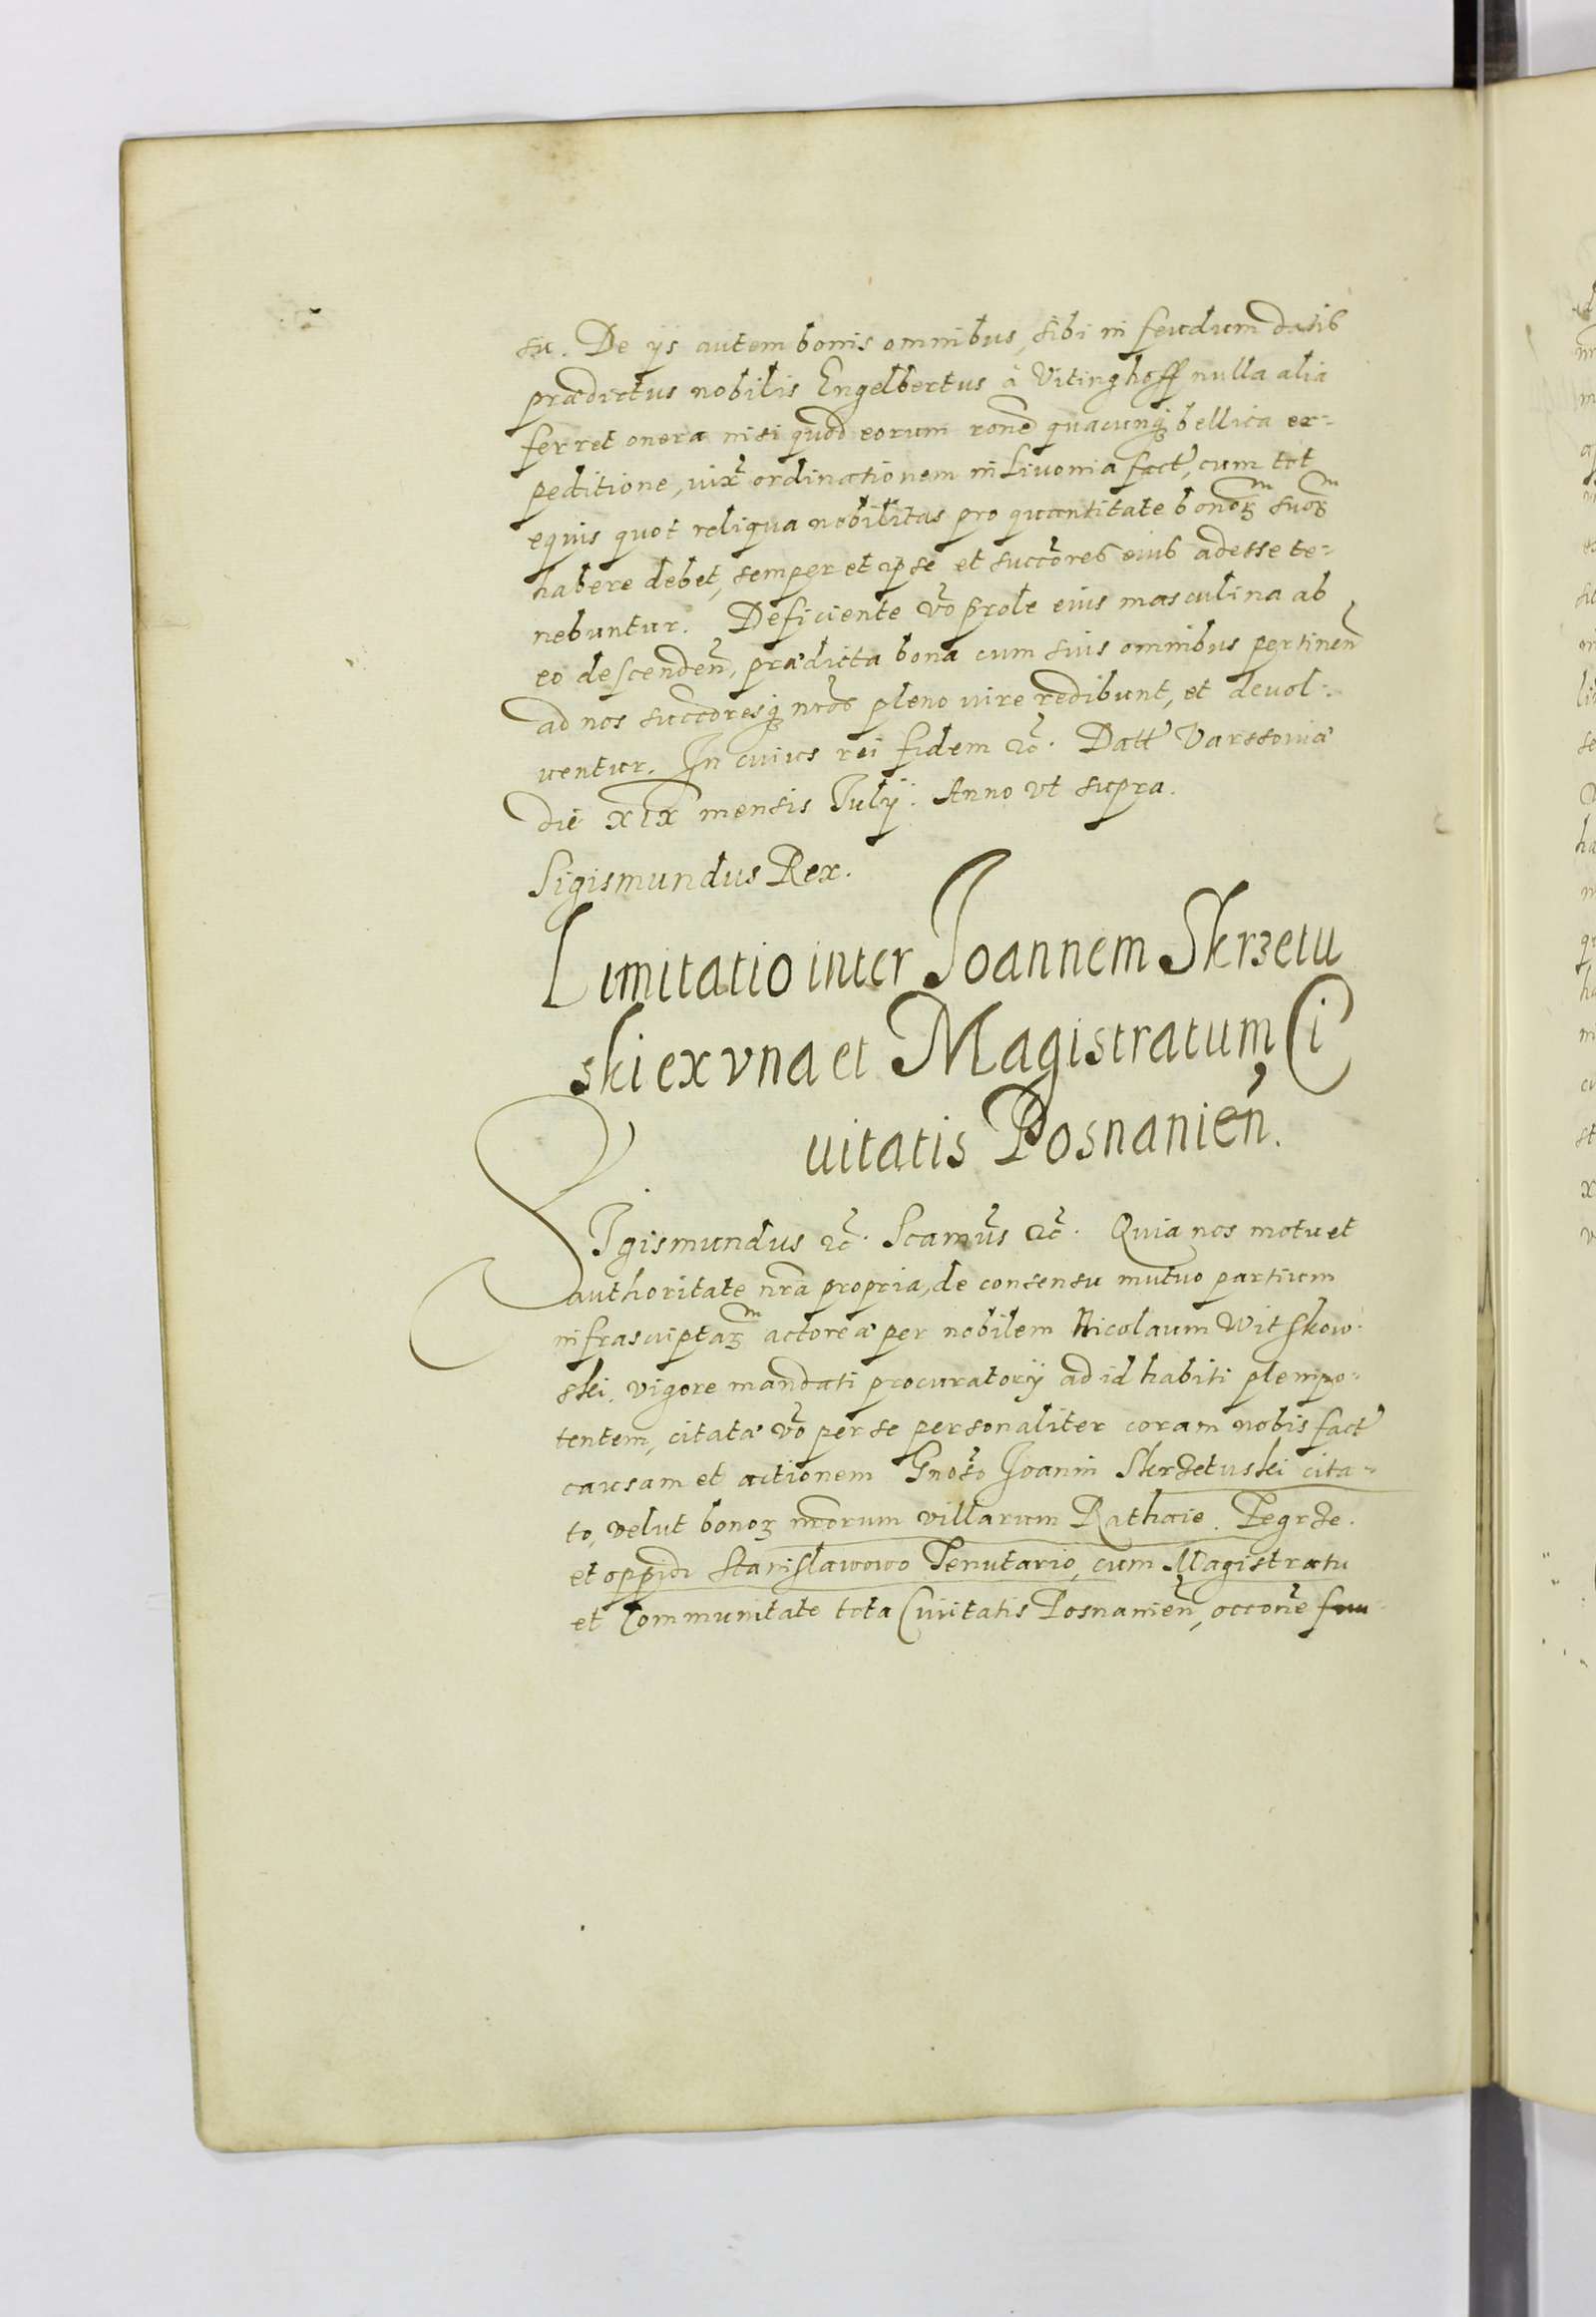 su. De ijs autem bonis omnibus, sibi in feudum datis
prædictus nobilis Engelbertus à Vitinghoff nulla alia
ferret onera nisi quod eorum rone quacunq bellica ex-
peditione, iuxt ordinationem in Livonia fact, cum tot
equis quot reliqua nobilitas pro quantitate bonor suor
habere debet, semper et ipse et succores eius adesse te-
nebuntur. Deficiente vo prole eius masculina ab
eo descenden, prædicta bona cum suis omnibus pertinen
ad nos succoresq nros pleno iure redibunt, et devol-
uentur. In cuius rei fidem &c. Datt Varssoviæ
die XIX mensis Iulij. Anno vt supra.
Sigismundus Rex.
Limitatio inter Joannem Skrzetu
ski ex vna et Magistratum Ci
uitatis Posnanien.
SIgismundus &c. Scamus &c. Quia nos motu et
authoritate nra propria, de consensu mutuo partium
infrascriptar actoreæ per nobilem Nicolaum Witskow-
ski, vigore mandati procuratorij ad id habiti plenipo-
tentem, citatæ vo per se personaliter coram nobis fact
causam et actionem Gnoso Joanni Skrzetuski cita-
to, velut bonor nrorum villarum Rathaie. Pegrze.
et oppidi Stanislawowo Tenutario, cum Magistratu
et Communitate tota Civitatis Posnanien, occone